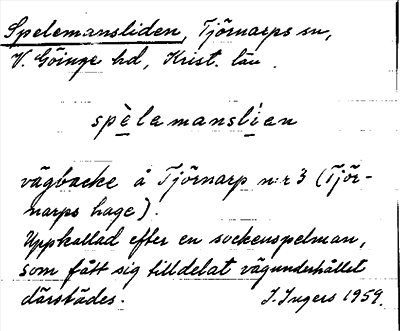 Spelemansliden, Tjörnarps sn,
V. Göinge hd, Krist. län.
spèlemanslíen
vägbacke å Tjörnarp n:r 3 (Tjör-
narps hage).
Uppkallad efter en sockenspelman,
som fått sig tilldelat vägunderhållet
därstädes. I. Ingers 1959.